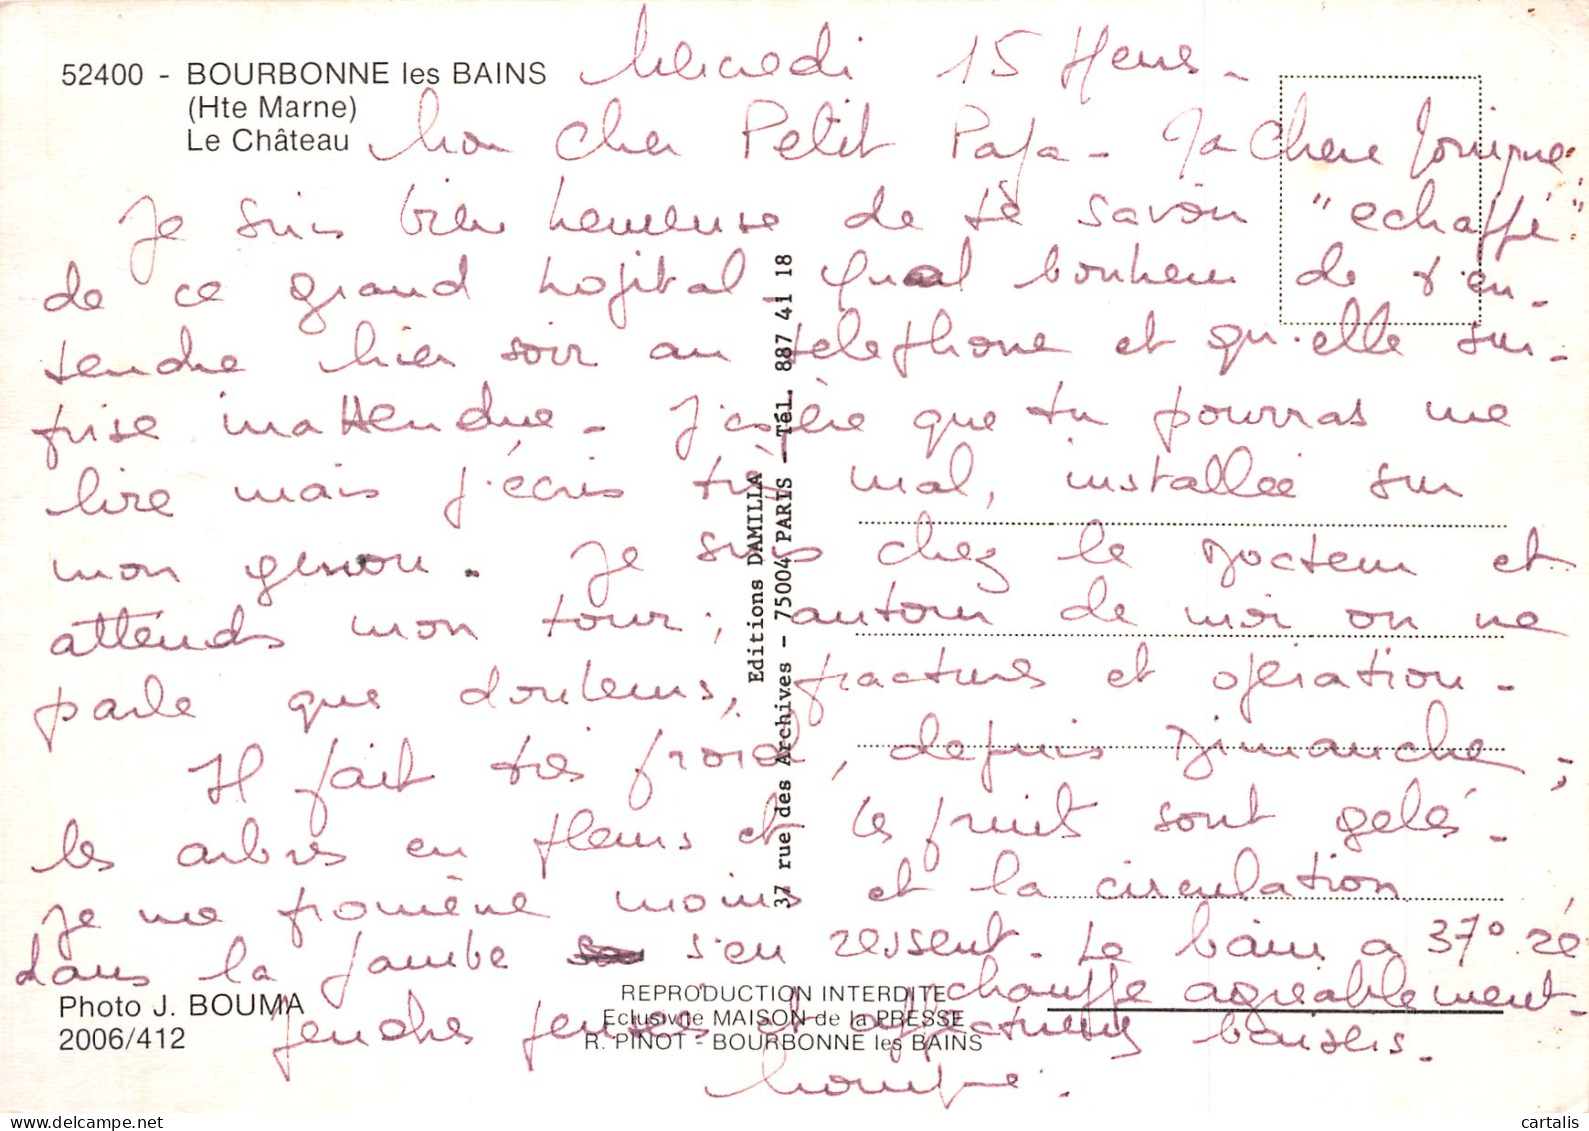 52400 - BOURBONNE les BAINS
(Hte Marne)
Le Château
Mercredi 15 Heures -
Mon cher Petit Papa - Ma Chere Monique
Je suis bien heureuse de te savoir "echappé"
de ce grand hopital. Quel bonheur de t'en-
tendre hier soir au telephone et qu'elle sur-
prise inattendue - J'espère que tu pourras me
lire mais j'écris très mal, installée sur
mon genou. Je suis chez le Docteur et
attends mon tour; autour de moi on ne
parle que douleurs, fractures et opération -
Il fait très froid, depuis Dimanche;
les arbres en fleurs et les fruit sont gelés -
Je me promène moins et la circulation
dans la jambe s'en ressent. Le bain a 37° ré
chauffe agreablement.
Tendres pensées et affectueux baisers.
Monique.
Editions DAMILLA
37 rue des Archives - 75004 PARIS - Tél. 887 41 18
Photo J. BOUMA
2006/412
REPRODUCTION INTERDITE
Eclusivité MAISON de la PRESSE
R. PINOT - BOURBONNE les BAINS
cartalis